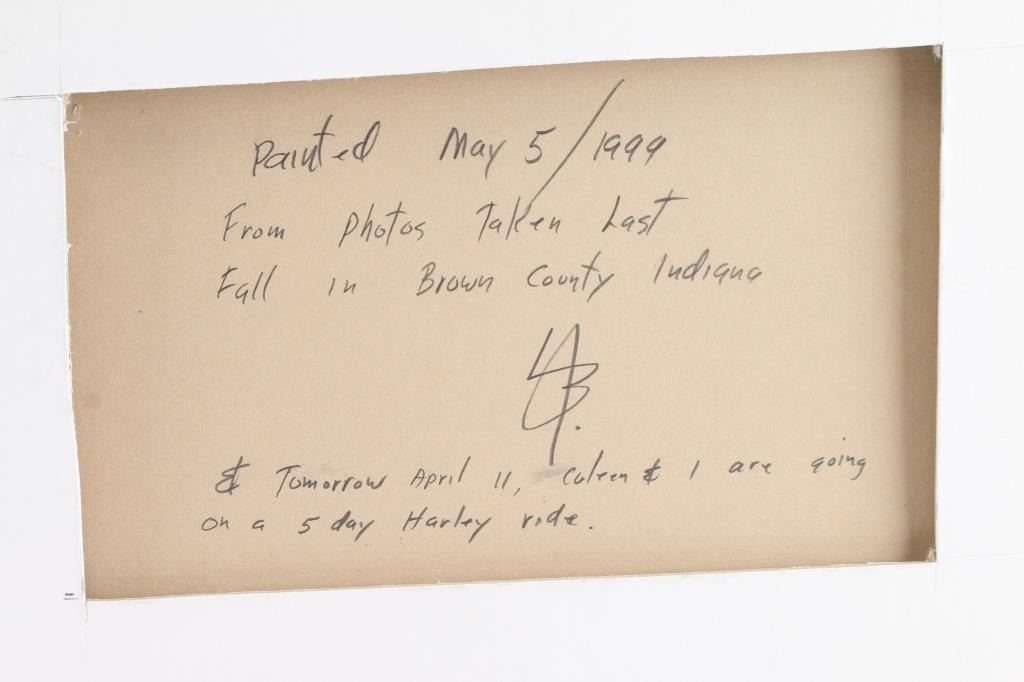 Painted May 5/1999
From Photos Taken Last
Fall in Brown County Indiana
& Tomorrow April 11, Coleen & I are going
on a 5 day Harley ride.